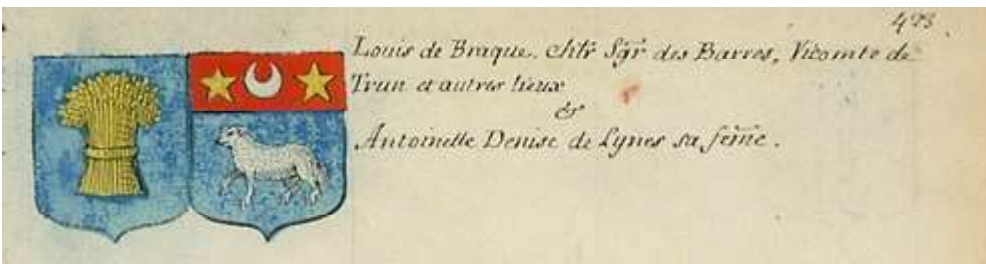 423
Louis de Braque. chlr Sgr des Barres, Vicomte de
Trun et autres lieux
&
Antoinette Denise de Lynes sa feme.